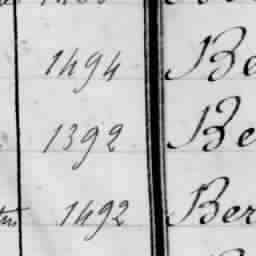 1494 Be
1392 Be
1492 Ber